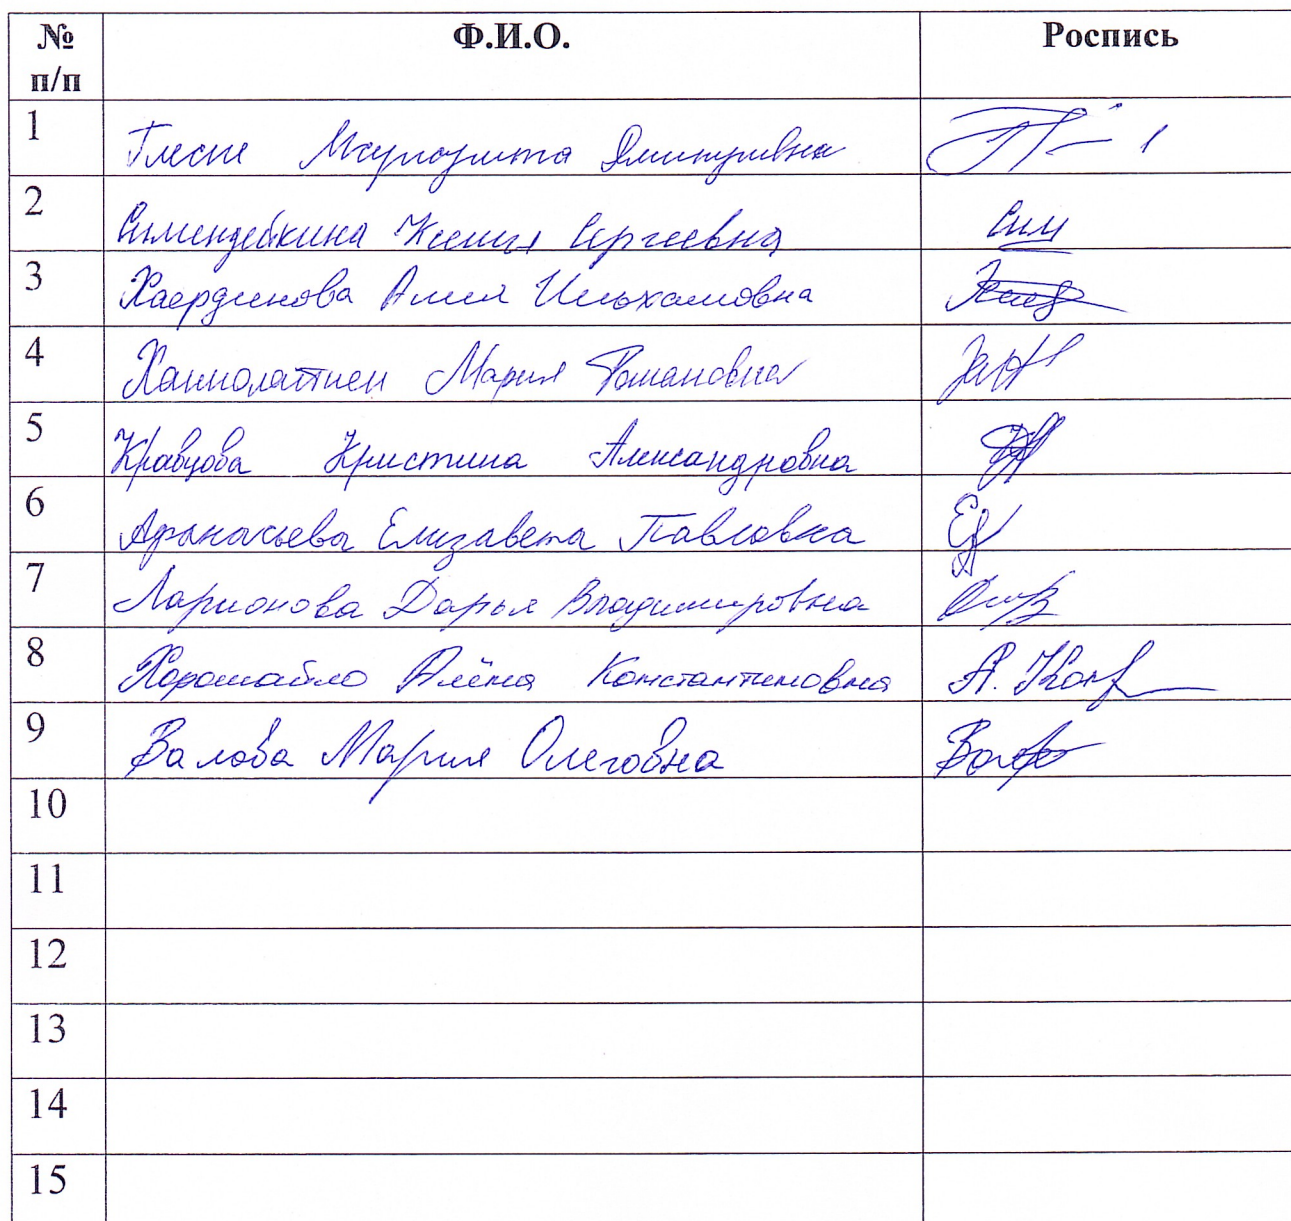 № п/п Ф.И.О. Роспись
1 Маргарита Дмитриевна
2 Симендейкина Ксения Сергеевна Сим
3 Хаердинова Алия Ильхамовна
4 Ханнолайнен Мария Романовна
5 Кравцова Кристина Александровна
6 Афанасьева Елизавета Павловна
7 Ларионова Дарья Владимировна
8 Хорошайло Алёна Константиновна
9 Валова Мария Олеговна
10
11
12
13
14
15